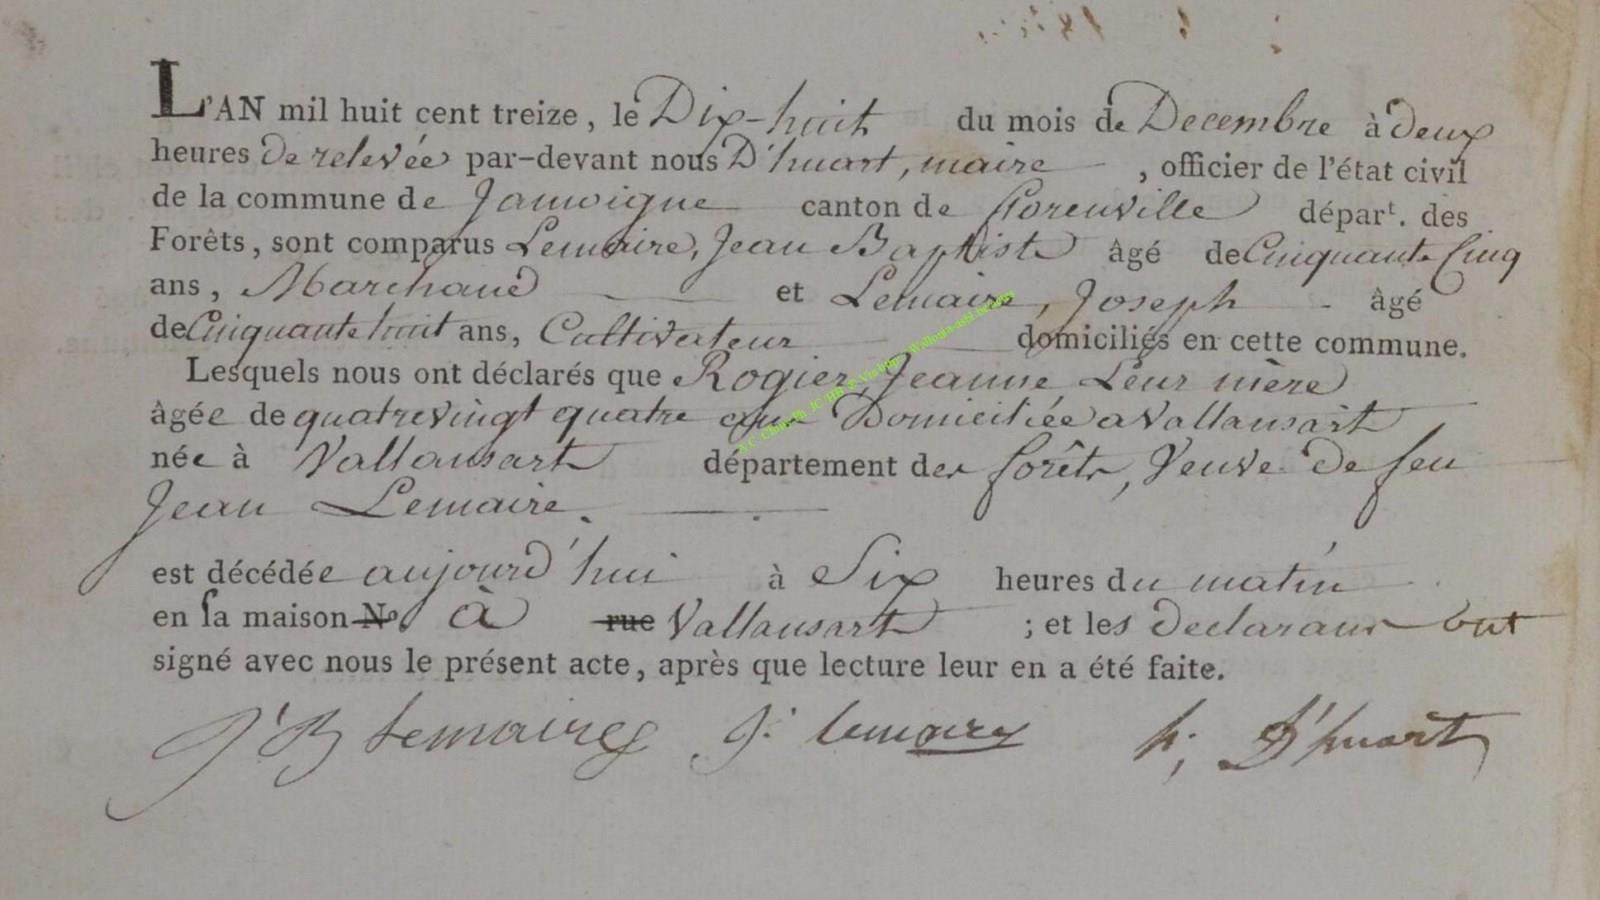 L'AN mil huit cent treize, le Dix-huit du mois de Decembre à deux
heures de relevée par-devant nous D'huart, maire, officier de l'état civil
de la commune de Jamoigne canton de florenvilleépart. des
Forêts, sont comparus Lemaire, Jean Baptiste âgé de Cinquante Cinq
ans, Marchand et Lemaire, Joseph âgé
de Cinquante huit ans, Cultivateur domiciliés en cette commune.
Lesquels nous ont déclarés que Rogier, Jeanne Leur mère
âgée de quatrevingt quatre ans Domiciliée a Vallansart
née à Vallansart département des forêts, Veuve De feu
Jean Lemaire.
est décédée aujourd'hui à Six heures du matin
en sa maison N.o à rue Vallansart ; et les declarans ont
signé avec nous le présent acte, après que lecture leur en a été faite.
J B Lemaire J. lemaire h; D'huart